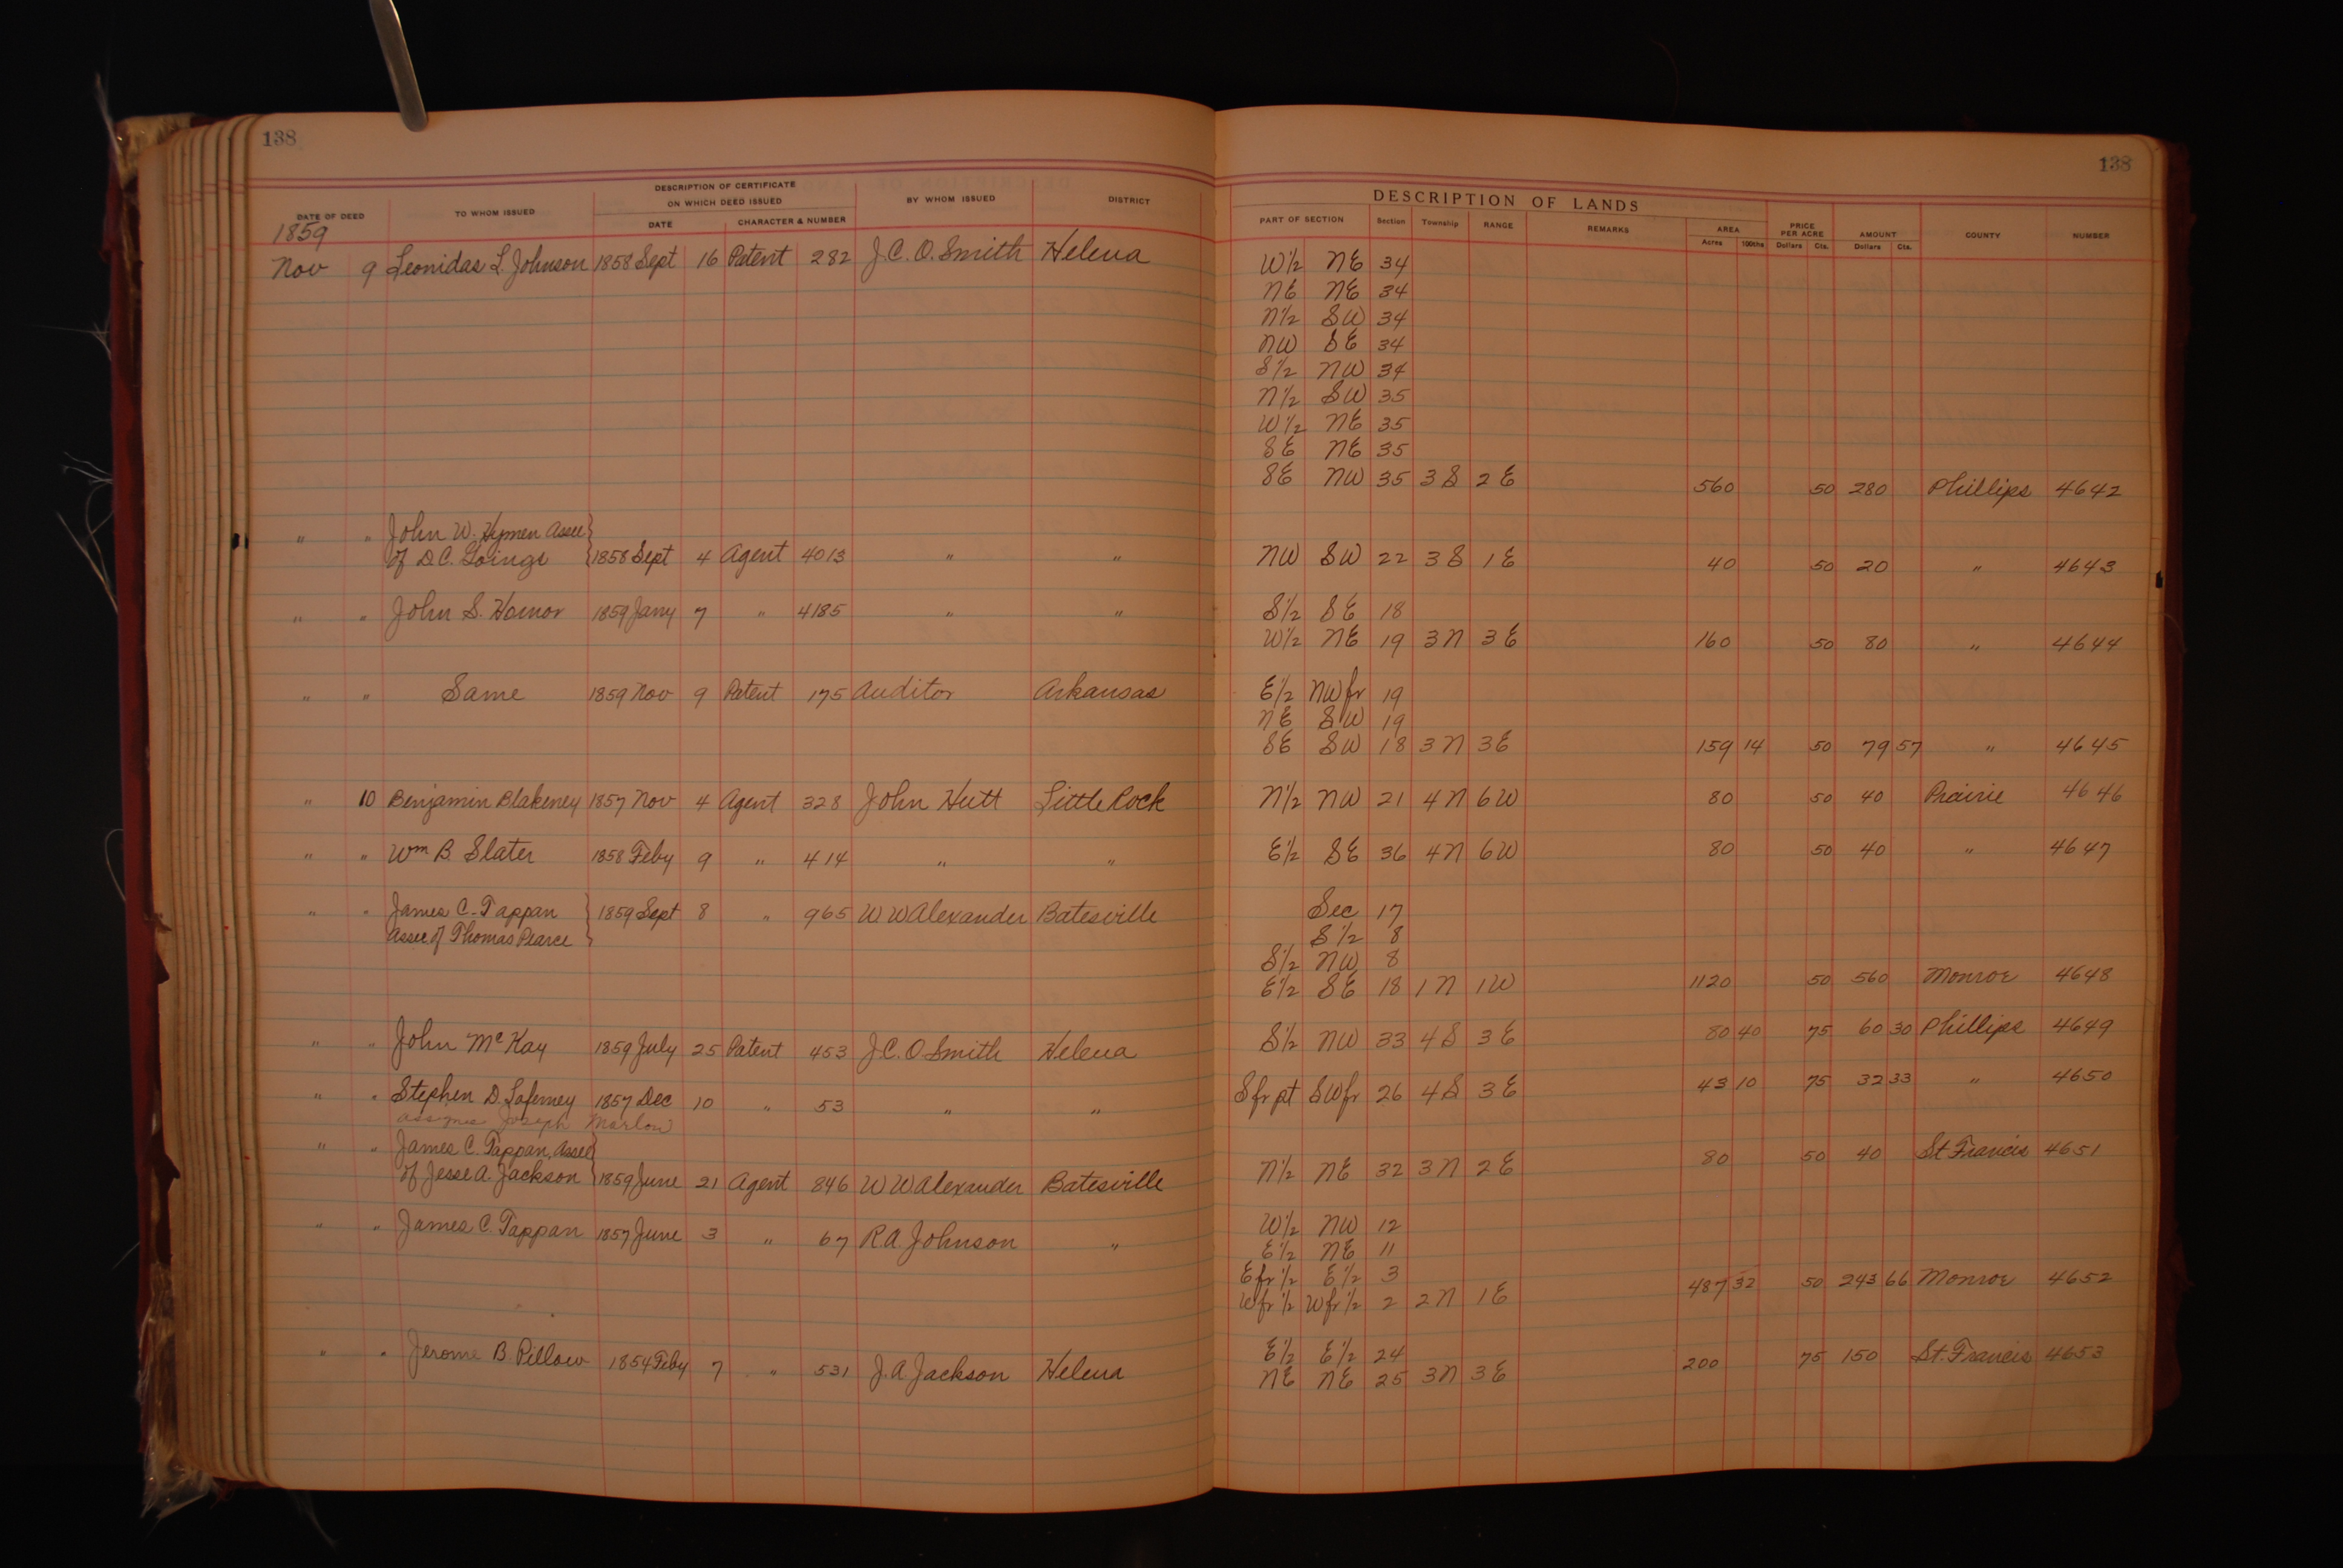 138
138
DESCRIPTION OF CERTIFICATE
ON WHICH DEED ISSUED
DATE OF DEED TO WHOM ISSUED DATE CHARACTER & NUMBER BY WHOM ISSUED DISTRICT
DESCRIPTION OF LANDS
PART OF SECTION Section Township RANGE REMARKS AREA Acres 100ths PRICE PER ACRE Dollars Cts. AMOUNT Dollars Cts. COUNTY NUMBER
1859
Nov 9 Leonidas L. Johnson 1858 Sept 16 Patent 282 J.C.O. Smith Helena W½ NE 34
NE NE 34
N½ SW 34
NW SE 34
S½ NW 34
N½ SW 35
W½ NE 35
SE NE 35
SE NW 35 3S 2E 560 50 280 Phillips 4642
" " John W. Hymen Assee
of D.C. Goings 1858 Sept 4 Agent 4013 " " NW SW 22 3S 1E 40 50 20 " 4643
" " John S. Hornor 1859 Jany 7 " 4185 " " S½ SE 18
W½ NE 19 3N 3E 160 50 80 " 4644
" " Same 1859 Nov 9 Patent 175 Auditor Arkansas E½ NWfr 19
NE SW 19
SE SW 18 3N 3E 159 14 50 79 57 " 4645
" 10 Benjamin Blakeney 1857 Nov 4 Agent 328 John Hutt Little Rock N½ NW 21 4N 6W 80 50 40 Prairie 4646
" " Wm B. Slater 1858 Feby 9 " 414 " " E½ SE 36 4N 6W 80 50 40 " 4647
" " James C. Tappan 1859 Sept 8 " 965 W W Alexander Batesville Sec 17
Assee of Thomas Pearce S½ 8
S½ NW 8
E½ SE 18 1N 1W 1120 50 560 Monroe 4648
" " John McKay 1859 July 25 Patent 453 J.C.O. Smith Helena S½ NW 33 4S 3E 80 40 75 60 30 Phillips 4649
" " Stephen D. Laferney 1857 Dec 10 " 53 " " S fr pt SWfr 26 4S 3E 43 10 75 32 33 " 4650
assignee Joseph Marlow
" " James C. Tappan, Assee
of Jesse A. Jackson 1859 June 21 Agent 846 W W Alexander Batesville N½ NE 32 3N 2E 80 50 40 St Francis 4651
" " James C. Tappan 1857 June 3 " 67 R.A. Johnson " W½ NW 12
E½ NE 11
E fr ½ E½ 3
W fr ½ W fr ½ 2 2N 1E 487 32 50 243 66 Monroe 4652
" " Jerome B. Pillow 1854 Feby 7 " 531 J.A. Jackson Helena E½ E½ 24
NE NE 25 3N 3E 200 75 150 St. Francis 4653